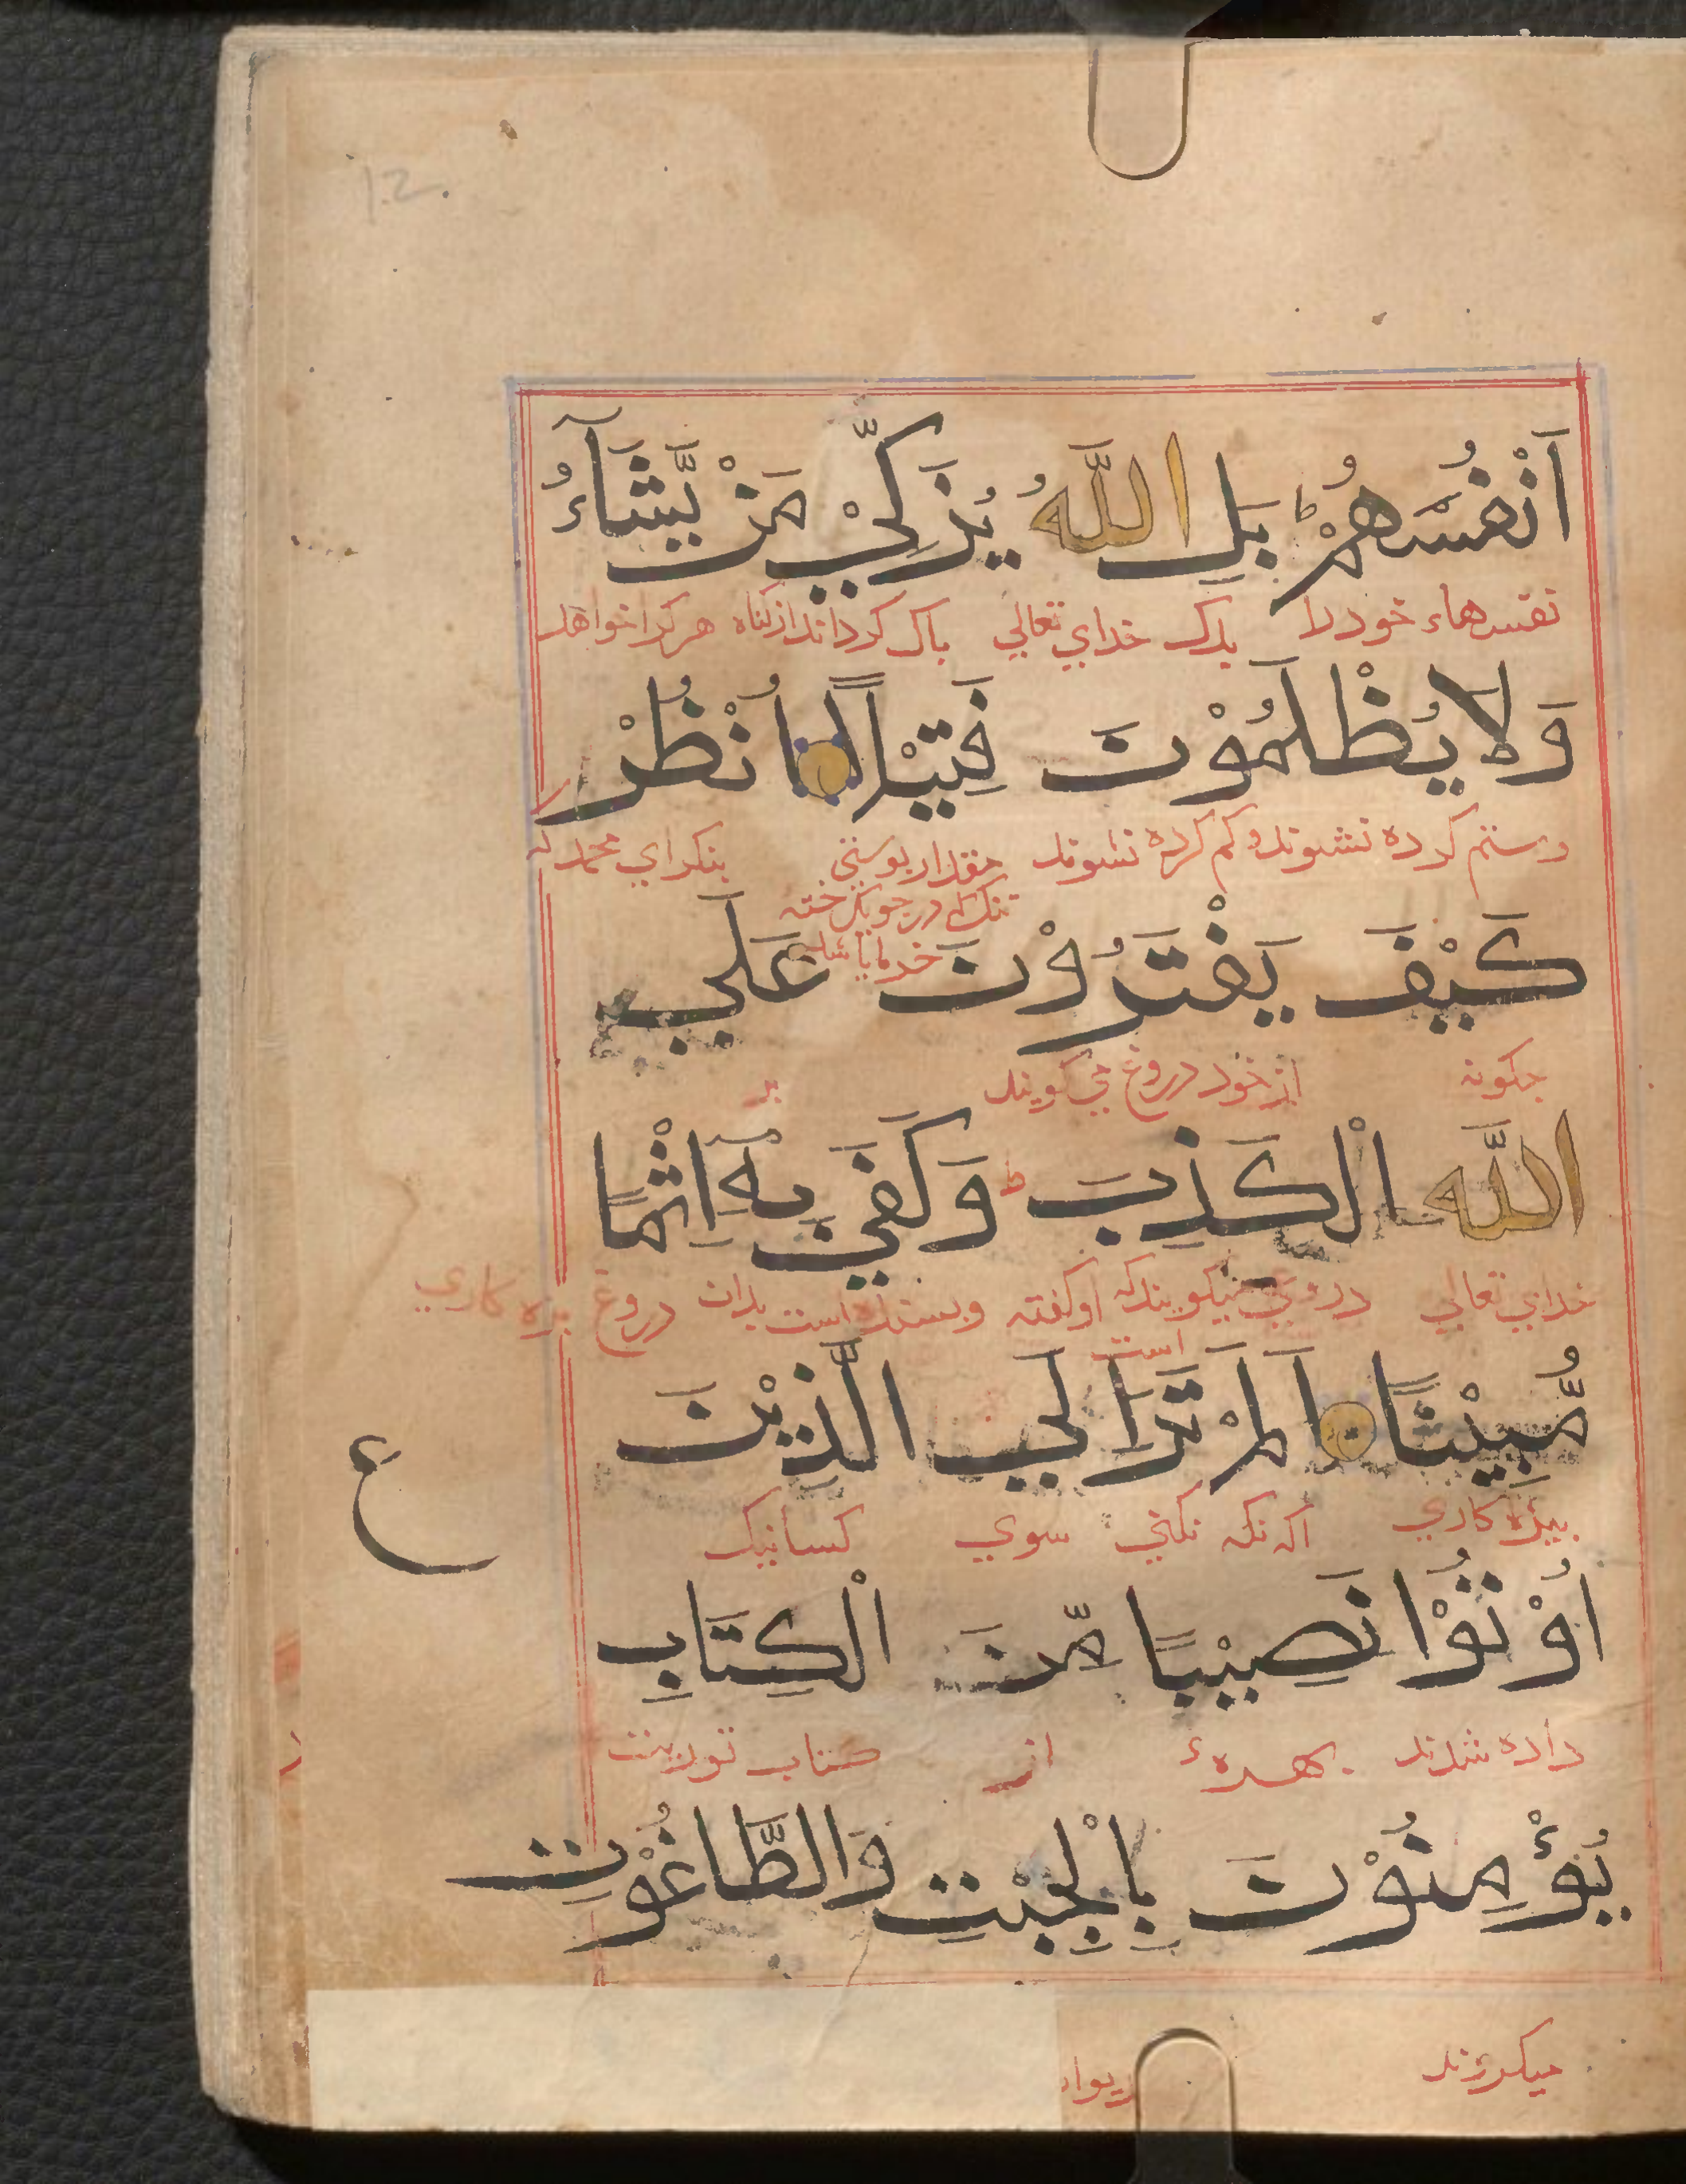 12.
اَنْفُسَهُمْ ط بَلِ اللّٰهُ يُزَكِّيْ مَنْ يَّشَآءُ
نفسهاء خود را بلك خداي تعالي باك كرداند از كناه هر كرا خواهد
وَلَا يُظْلَمُوْنَ فَتِيْلًا اُنْظُرْ
وستم كرده نشوند و كم كرده نشوند مقدار پوستي بنكر اي محمد كه
تنك در جوبك خسته
خرما باشد
كَيْفَ يَفْتَرُوْنَ عَلَي
جكونه از خود دروغ مي كويند بر
اللّٰهِ الْكَذِبَ ط وَكَفَيٰ بِهٖٓ اِثْمًا
خداي تعالي دروغي ميكويند كه او كفته وبسنده است بدان دروغ بزه كاري
است
مُّبِيْنًا اَلَمْ تَرَ اِلَي الَّذِيْنَ
بزه كاري اكه نكه نكني سوي كسانيك
ع
اُوْتُوْا نَصِيْبًا مِّنَ الْكِتَابِ
داده شدند بهرهء از كتاب توريت
يُؤْمِنُوْنَ بِالْجِبْتِ وَالطَّاغُوْتِ
ميكروند